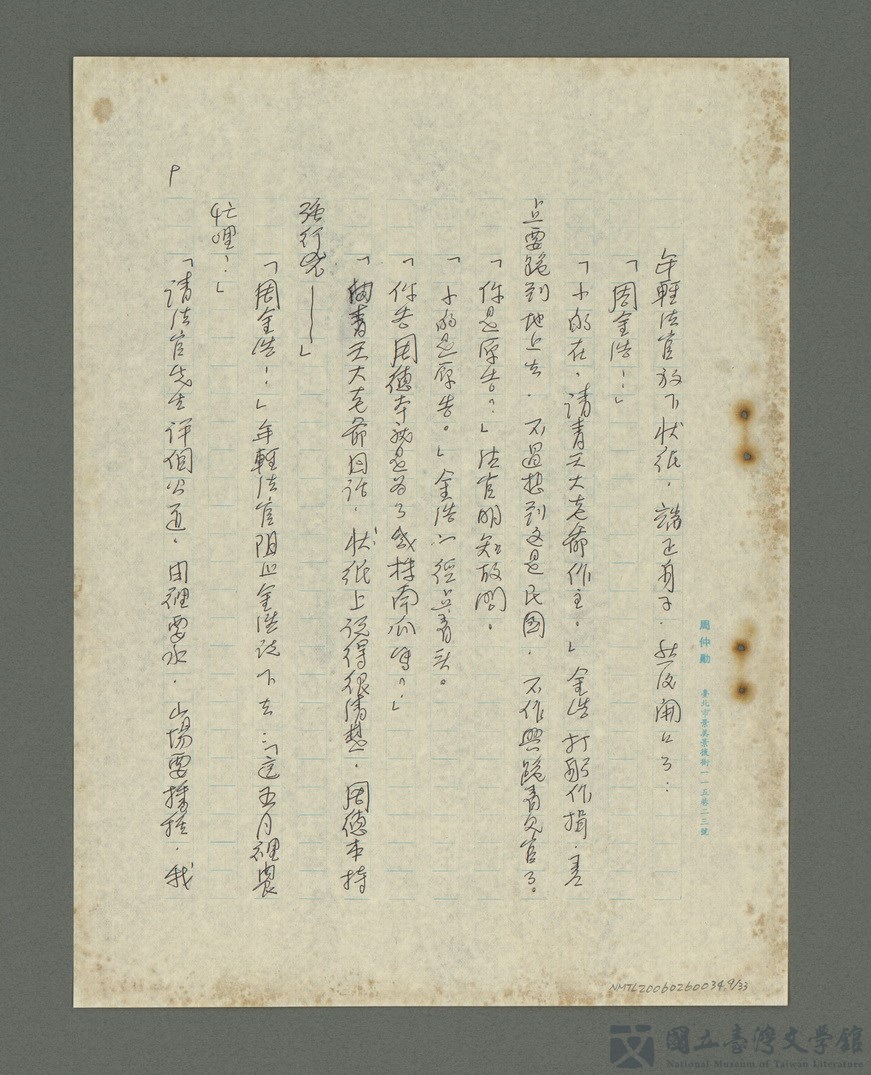 年輕法官放下狀紙,端正身子,然後開口了:
「周金浩!」
「小的在,請青天大老爺作主。」金浩打躬作揖,差
点要跪到地上去,不過想到这是民國,不作興跪青天官了。
「你是原告?」法官明知故問。
「小的是原告。」金浩一径点着头。
「你告周德本就是为了幾株南瓜嗎?」
「青天大老爺回話,狀紙上说得很清楚,周德本持
強行兇——」
「周金浩!」年輕法官阻止金浩说下去:「這五月裡農
忙哩?」
「請法官先生评個公道,田裡要水,山場要播种,我
9
周仲勳 臺北市景美景後街一一五巷二三號
NMTL20060260034.9/33
國立臺灣文學館
National Museum of Taiwan Literature